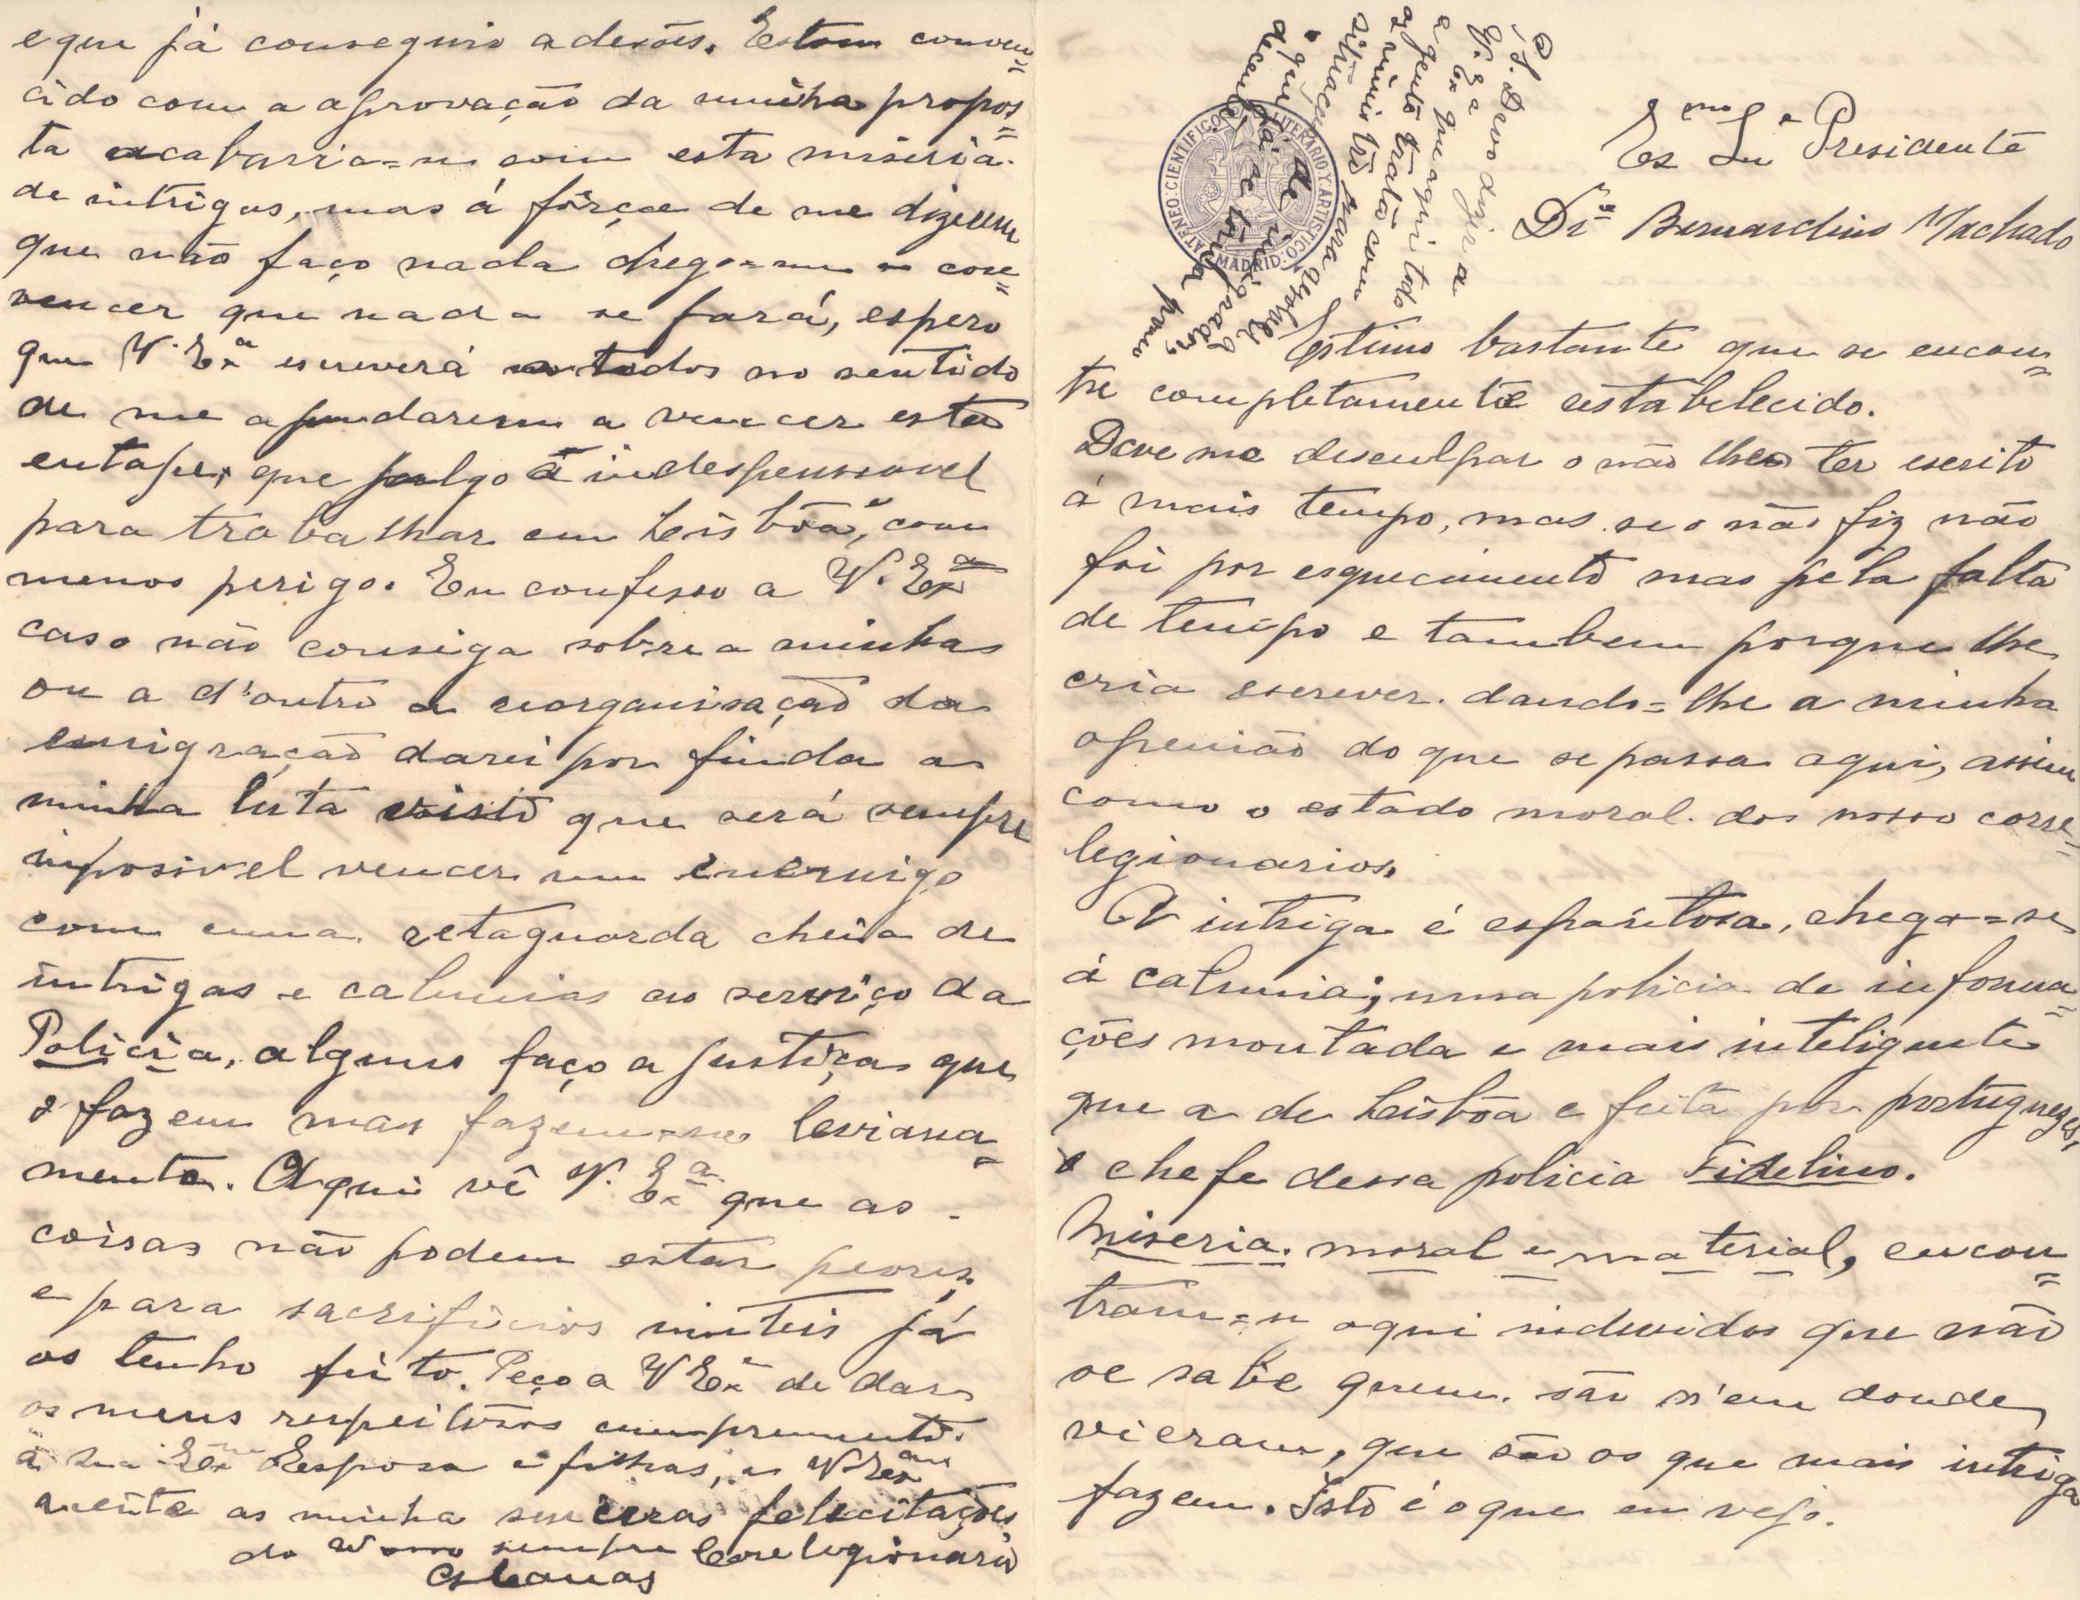 Ex.mo Sn.r Presidente
Dr. Bernardino Machado
Estimo bastante que se encon=
tre completamente establecido.
Deve me desculpar o não lhe ter escrito
á mais tempo, mas se o não fiz não
foi por esquecimento mas pela falta
de tempo e tambem porque lhe
cria escrever. dando=lhe a minha
openião do que se passa aqui, assim
como o estado moral. dos nosso corre=
legionarios.
A intriga é espantosa, chega=se
á calunia; uma policia de informa=
ções montada e mais inteligente
que a de Lisbôa e feita por portuguezes,
o chefe dessa policia Fidelino.
Miseria. moral e material, encon=
tram=se aqui individos que não
se sabe quem. são n'em donde
vieram, que são os que mais intriga
fazem. Isto é o que eu vejo.
e que já conseguio adesões. Estou conven=
cido com a aprovação da minha propos=
ta acabaria=se com esta miseria.
de intrigas, mas á fôrça de me dizerem
que não faço nada chego=me a con=
vencer que nada se fará, espero
que V. Ex.a escreverá a todos no sentido
de me ajudarem a vencer esta
entape, que julgo é indespensavel
para trabalhar em Lisbôa, com
menos perigo. Eu confesso a V. Ex.a
caso não consiga sobre a minha
ou a d'outro a reorganisação da
emigração darei por finda a
minha luta visto que será sempre
imposivel vencer um enemigo
com uma retaguarda cheia de
intrigas e calunias ao serviço da
Policia, alguns faço a justiça que
o fazem mas fazem=no leviana=
mente. Aqui vê V. Ex.a que as
coisas não podem estar peores,
e para sacrificios inuteis já
os tenho feito. Peço a V Ex.a de dar
os meus respeitosos cumprementos
á sua Ex.ma Esposa e filhas, e V. Ex.a
aceite as minha sinceras felecitações
do V. sempre Correlegionario
P.S. Devo dizer a
V. Exa que aqui todo
a gente trata com
os ministros para resolver a
situação
de emigrados,